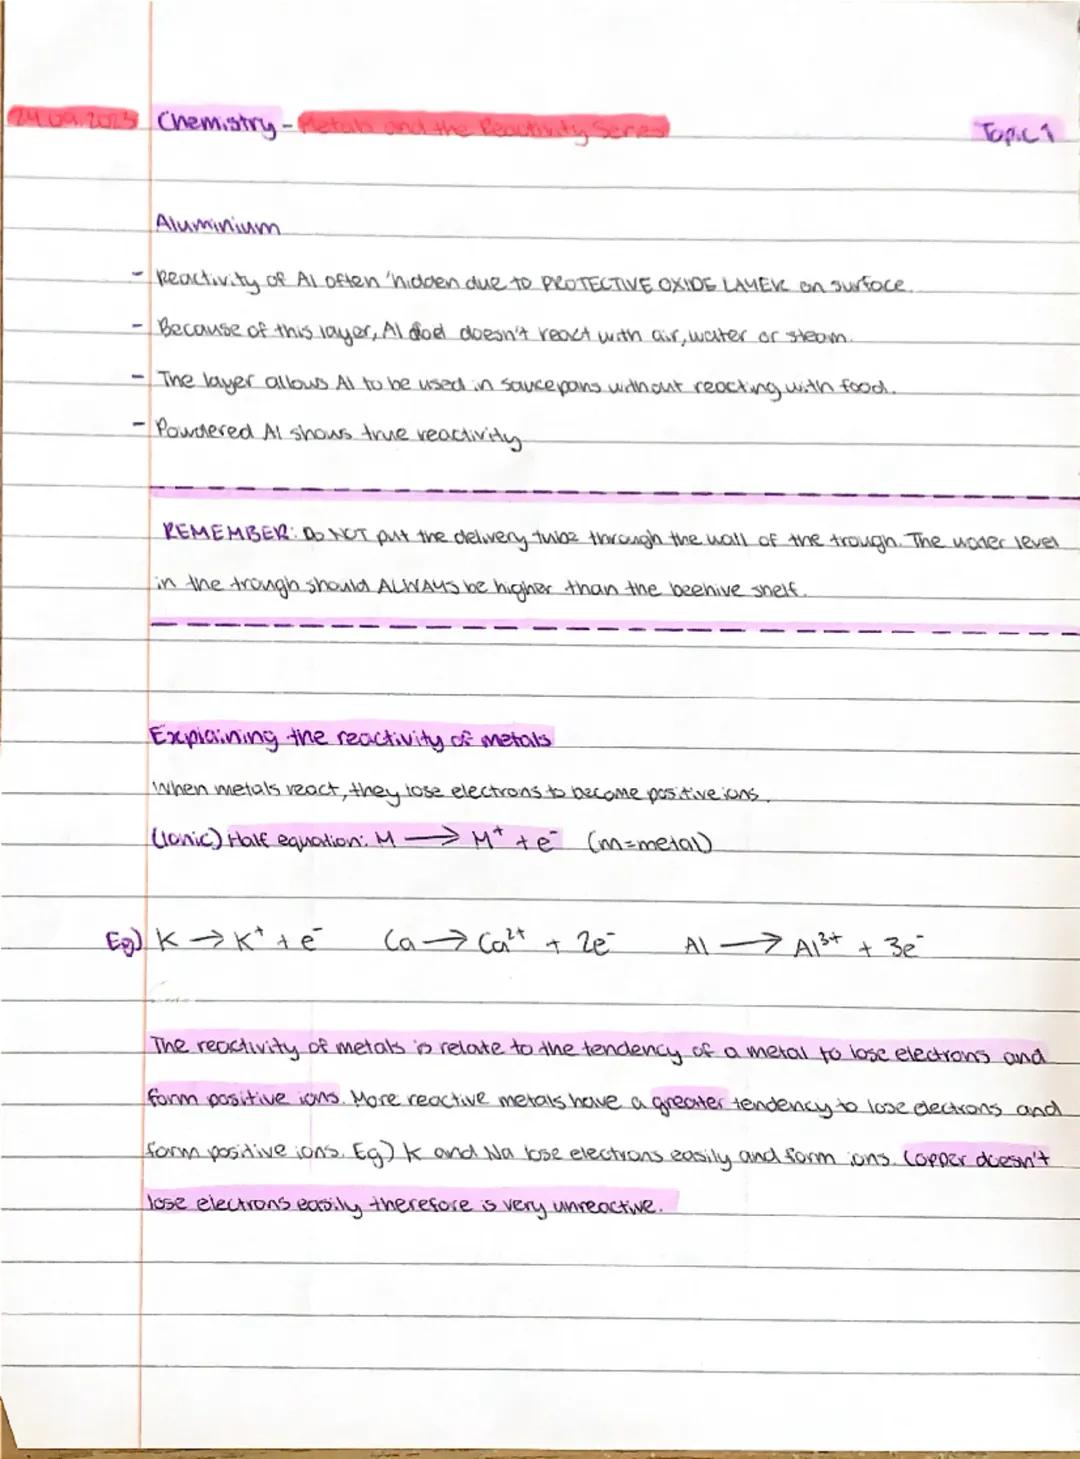 24.09.2023 Chemistry - Metals and the Reactivity Series Topic 1
Aluminium
- Reactivity of Al often 'hidden due to PROTECTIVE OXIDE LAYER on surface.
- Because of this layer, Al doesn't react with air, water or steam.
- The layer allows Al to be used in saucepans without reacting with food.
- Powdered Al shows true reactivity
REMEMBER: Do NOT put the delivery tube through the wall of the trough. The water level
in the trough should ALWAYS be higher than the beehive shelf.
Explaining the reactivity of metals
When metals react, they lose electrons to become positive ions.
(Ionic) Half equation: M → M⁺ + e⁻ (m=metal)
Eg) K → K⁺ + e⁻ Ca → Ca²⁺ + 2e⁻ Al → Al³⁺ + 3e⁻
The reactivity of metals is relate to the tendency of a metal to lose electrons and
form positive ions. More reactive metals have a greater tendency to lose electrons and
form positive ions. Eg) K and Na lose electrons easily and form ions. Copper doesn't
lose electrons easily therefore is very unreactive.